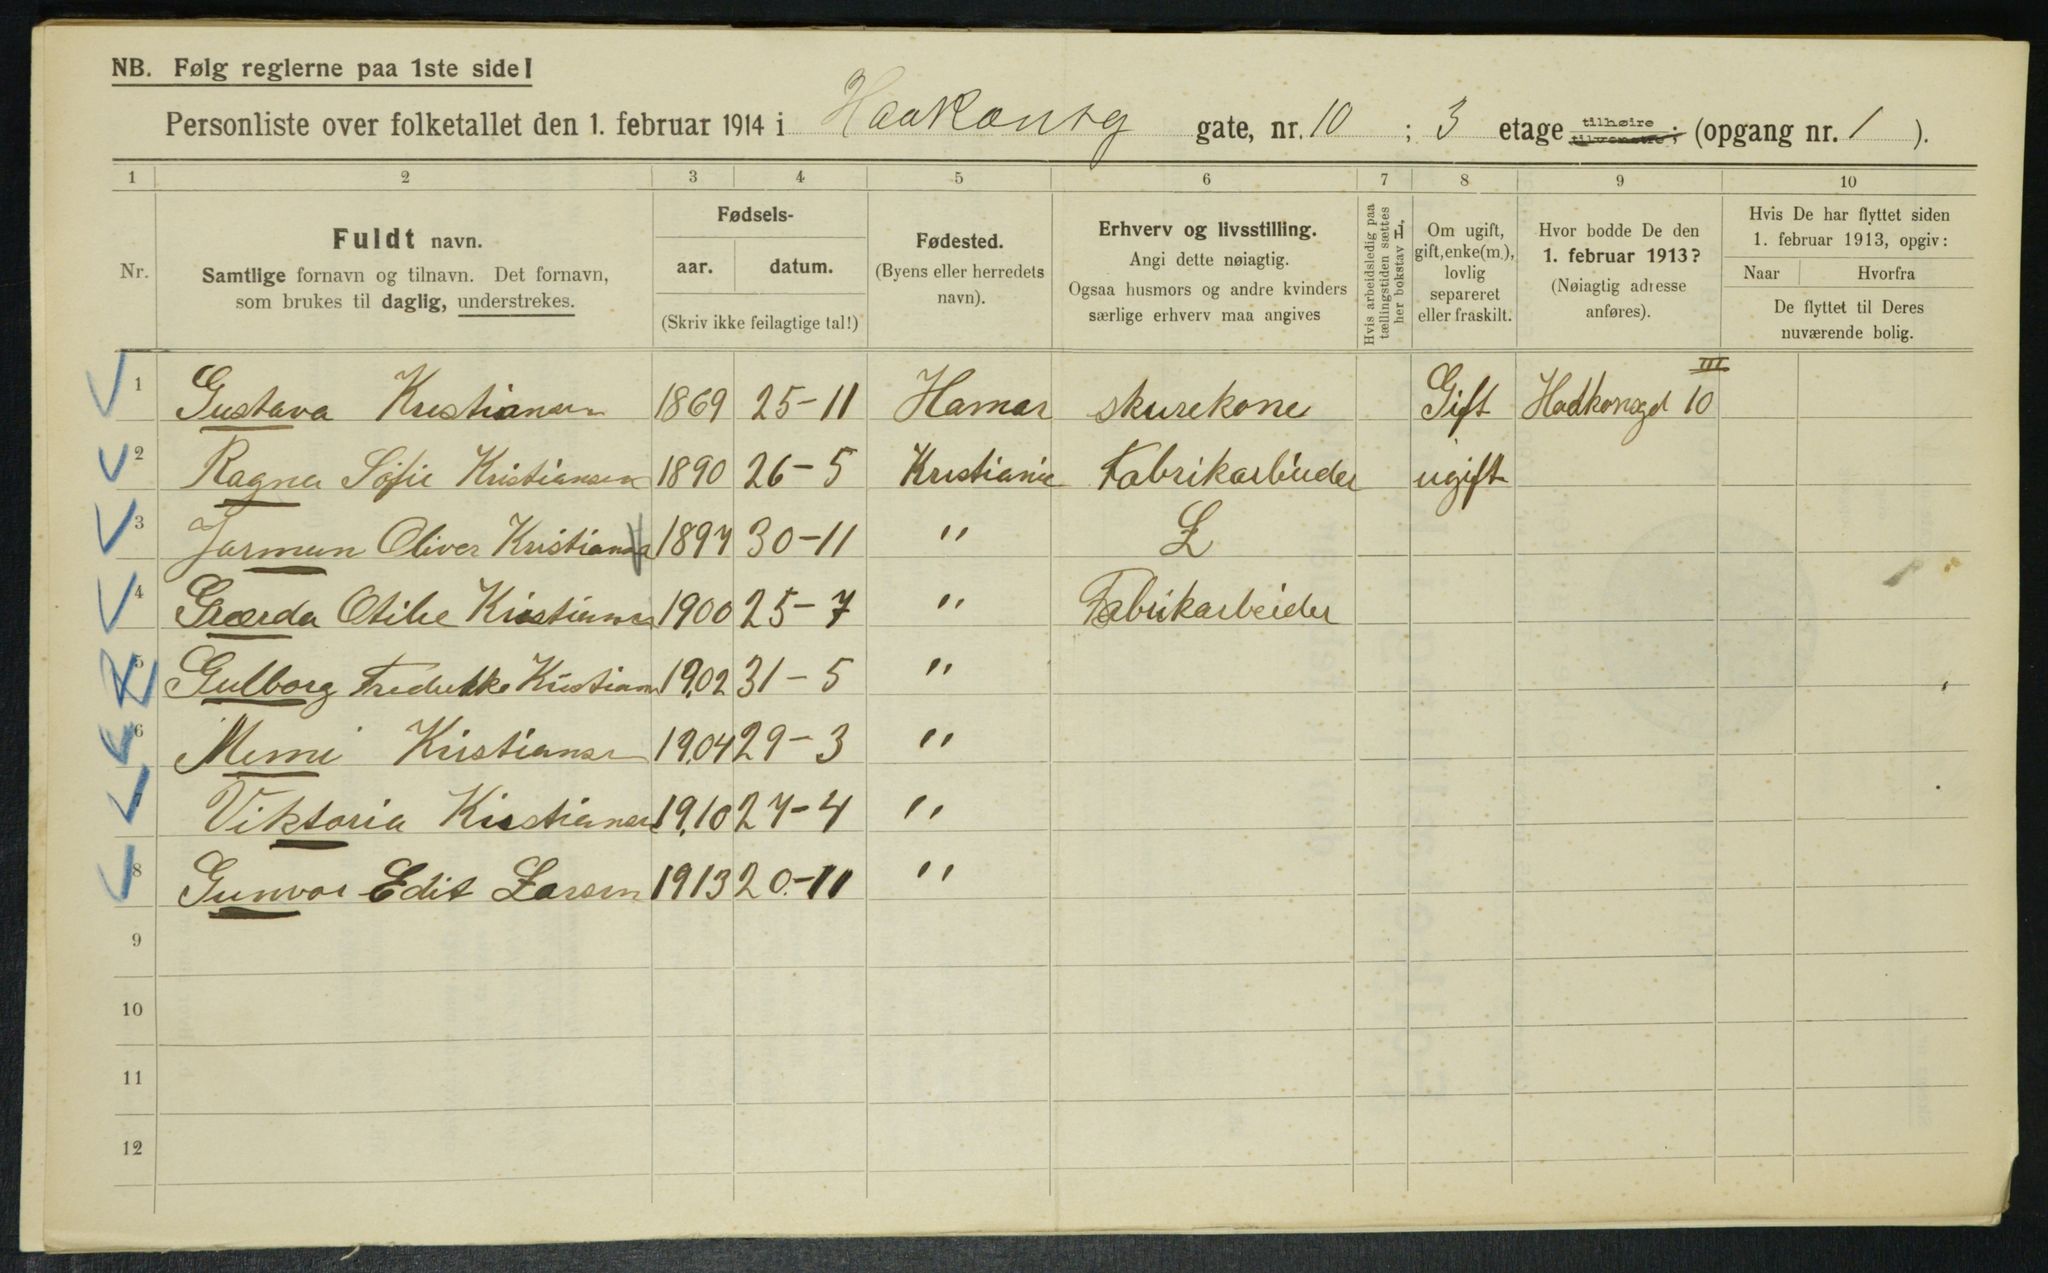 NB. Følg reglerne paa 1ste side!
Personliste over folketallet den 1. februar 1914 i Haakonsg gate, nr. 10 ; 3 etage tilhøire tilvenstre; (opgang nr. 1 ).
1 2 3 4 5 6 7 8 9 10
Nr.
Fuldt navn.
Samtlige fornavn og tilnavn. Det fornavn,
som brukes til daglig, understrekes.
Fødsels-
aar. datum.
(Skriv ikke feilagtige tal!)
Fødested.
(Byens eller herredets
navn).
Erhverv og livsstilling.
Angi dette nøiagtig.
Ogsaa husmors og andre kvinders
særlige erhverv maa angives
Hvis arbeidsledig paa
tællingstiden sættes
her bokstav L.
Om ugift,
gift, enke(m.),
lovlig
separeret
eller fraskilt.
Hvor bodde De den
1. februar 1913?
(Nøiagtig adresse
anføres).
Hvis De har flyttet siden
1. februar 1913, opgiv:
Naar Hvorfra
De flyttet til Deres
nuværende bolig.
1 Gustava Kristiansen 1869 25-11 Hamar skurekone Gift Haakonsgd 10 III
2 Ragna Sofie Kristiansen 1890 26-5 Kristiania Fabrikarbeider ugift
3 Jarmun Oliver Kristiansen 1897 30-11 " L
4 Gærda Otilie Kristiansen 1900 25-7 " Fabrikarbeider
5 Gulborg Fredrikke Kristians 1902 31-5 "
6 Mimi Kristiansen 1904 29-3 "
Viktoria Kristiansen 1910 27-4 "
8 Gunvor Edit Larsen 1913 20.-11 "
9
10
11
12